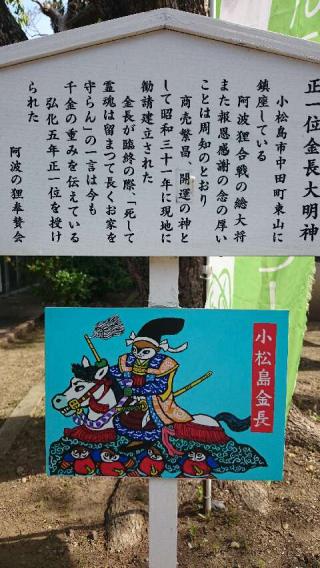 正一位金長大明神
小松島市中田町東山に
鎮座している
阿波狸合戦の総大将
また報恩感謝の念の厚い
ことは周知のとおり
商売繁昌、開運の神と
して昭和三十一年に現地に
勧請建立された
金長が臨終の際、「死して
霊魂は留まつて長くお家を
守らん」の一言は今も
千金の重みを伝えている
弘化五年正一位を授け
られた
阿波の狸奉賛会
小松島金長